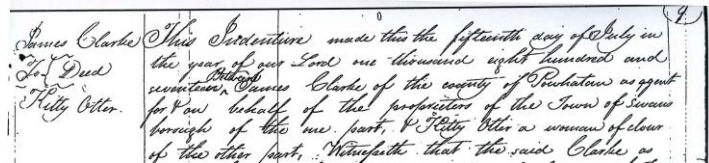 9
James Clarke This Indenture made this the fifteenth day of July in
To } Deed the year of our Lord one thousand eight hundred and
Kitty Otter. seventeen, Between James Clarke of the county of Powhatan as agent
for & on behalf of the proprietors of the Town of Swans
borough of the one part, & Kitty Otter a woman of colour
of the other part, Witnesseth that the said Clarke as